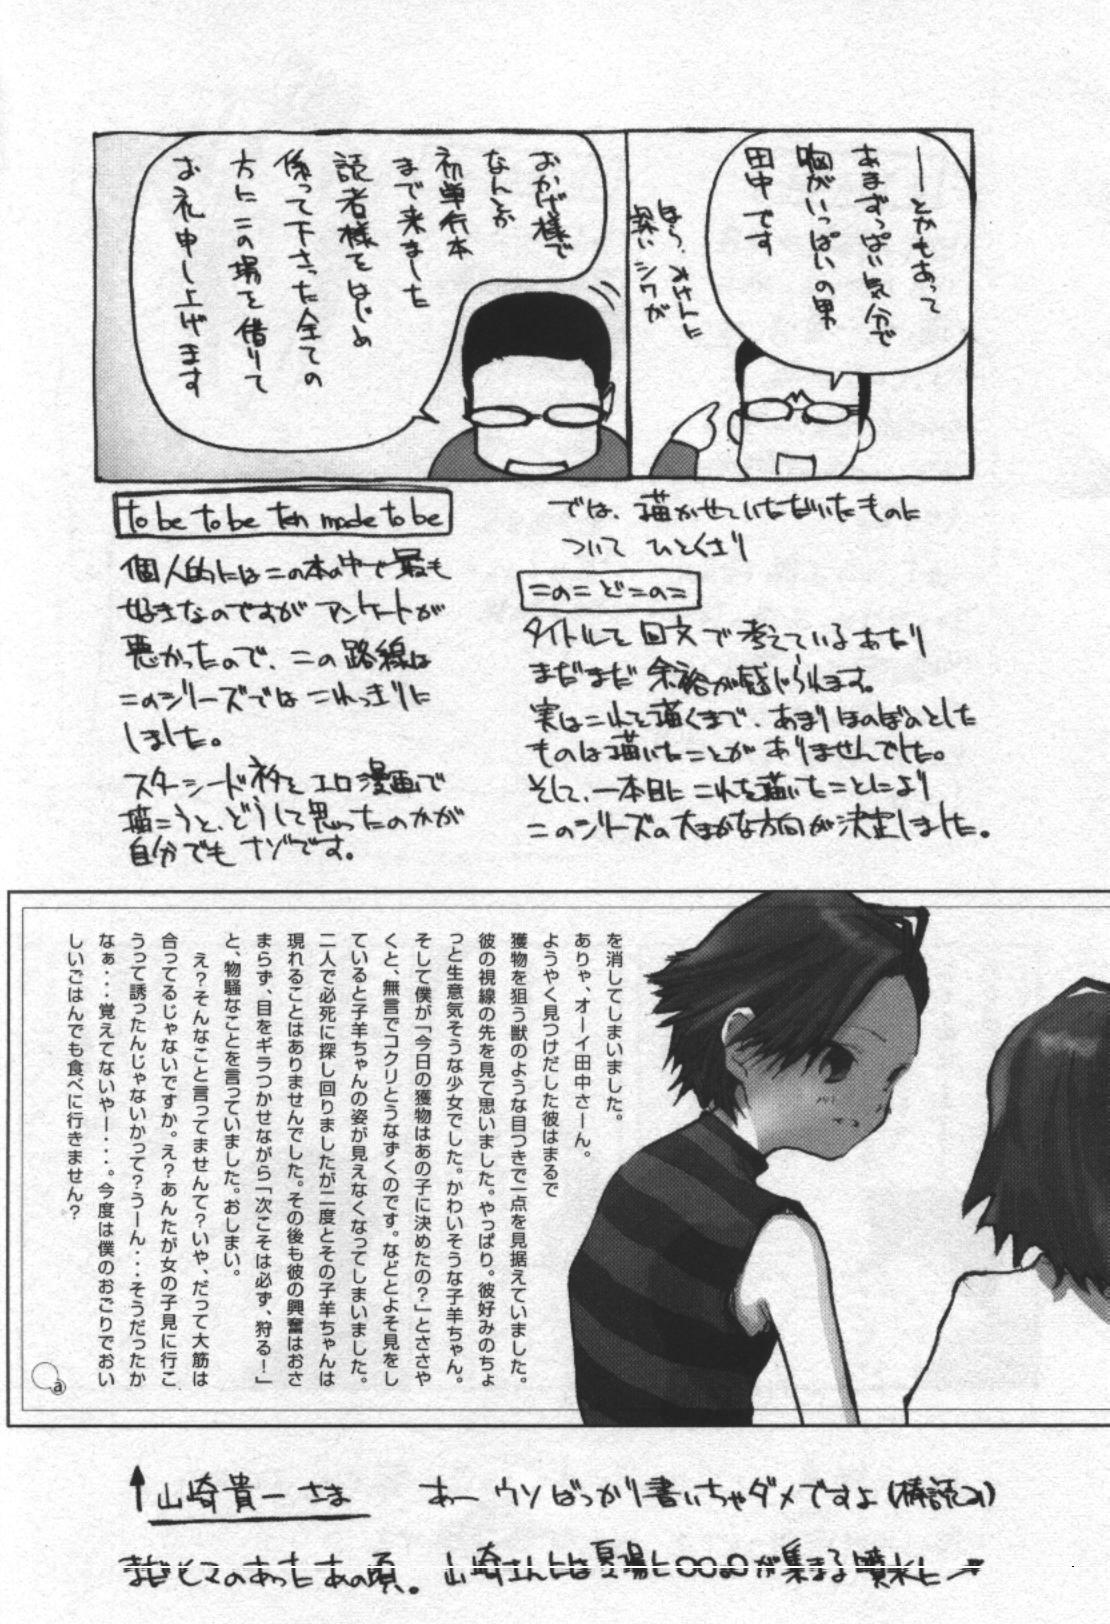 ―とかもあって
あまずっぱい気分で
胸がいっぱいの男
田中です
ほら、オケトに
深いシワが
おかげ様で
なんとか
初単行本
まで来ました
読者様をはじめ
係って下さった全ての
方にこの場を借りて
お礼申し上げます
では、描かせていただいたものに
ついて ひとくさり
このこ どこのこ
タイトルを回文で考えているあたり
まだまだ 余裕が感じられます。
実はこれを描くまで、あまりほのぼのとした
ものは描いたことがありませんでした。
そして、一本目にこれを描いたことにより
このシリーズの大まかな方向が決定しました。
to be to be ten made to be
個人的にはこの本の中で最も
好きなのですがアンケートが
悪かったので、この路線は
このシリーズではこれっきりに
しました。
スターシードネタをエロ漫画で
描こうと、どうして思ったのかが
自分でもナゾです。
を消してしまいました。
ありゃ、オーイ田中さーん。
ようやく見つけだした彼はまるで
獲物を狙う獣のような目つきで一点を見据えていました。
彼の視線の先を見て思いました。やっぱり。彼好みのちょ
っと生意気そうな少女でした。かわいそうな子羊ちゃん。
そして僕が「今日の獲物はあの子に決めたの?」とささや
くと、無言でコクリとうなずくのです。などとよそ見をし
ていると子羊ちゃんの姿が見えなくなってしまいました。
二人で必死に探し回りましたが二度とその子羊ちゃんは
現れることはありませんでした。その後も彼の興奮はおさ
まらず、目をギラつかせながら「次こそは必ず、狩る!」
と、物騒なことを言っていました。おしまい。
え?そんなこと言ってませんて?いや、だって大筋は
合ってるじゃないですか。え?あんたが女の子見に行こ
うって誘ったんじゃないかって?うーん・・・そうだったか
なぁ・・・覚えてないやー・・・。今度は僕のおごりでおい
しいごはんでも食べに行きません?
a
↑山崎貴一さま あー ウソばっかり書いちゃダメですよ(棒読み)
まだヒマのあったあの頃。山崎さんとは夏場に〇〇〇〇が集まる噴水に